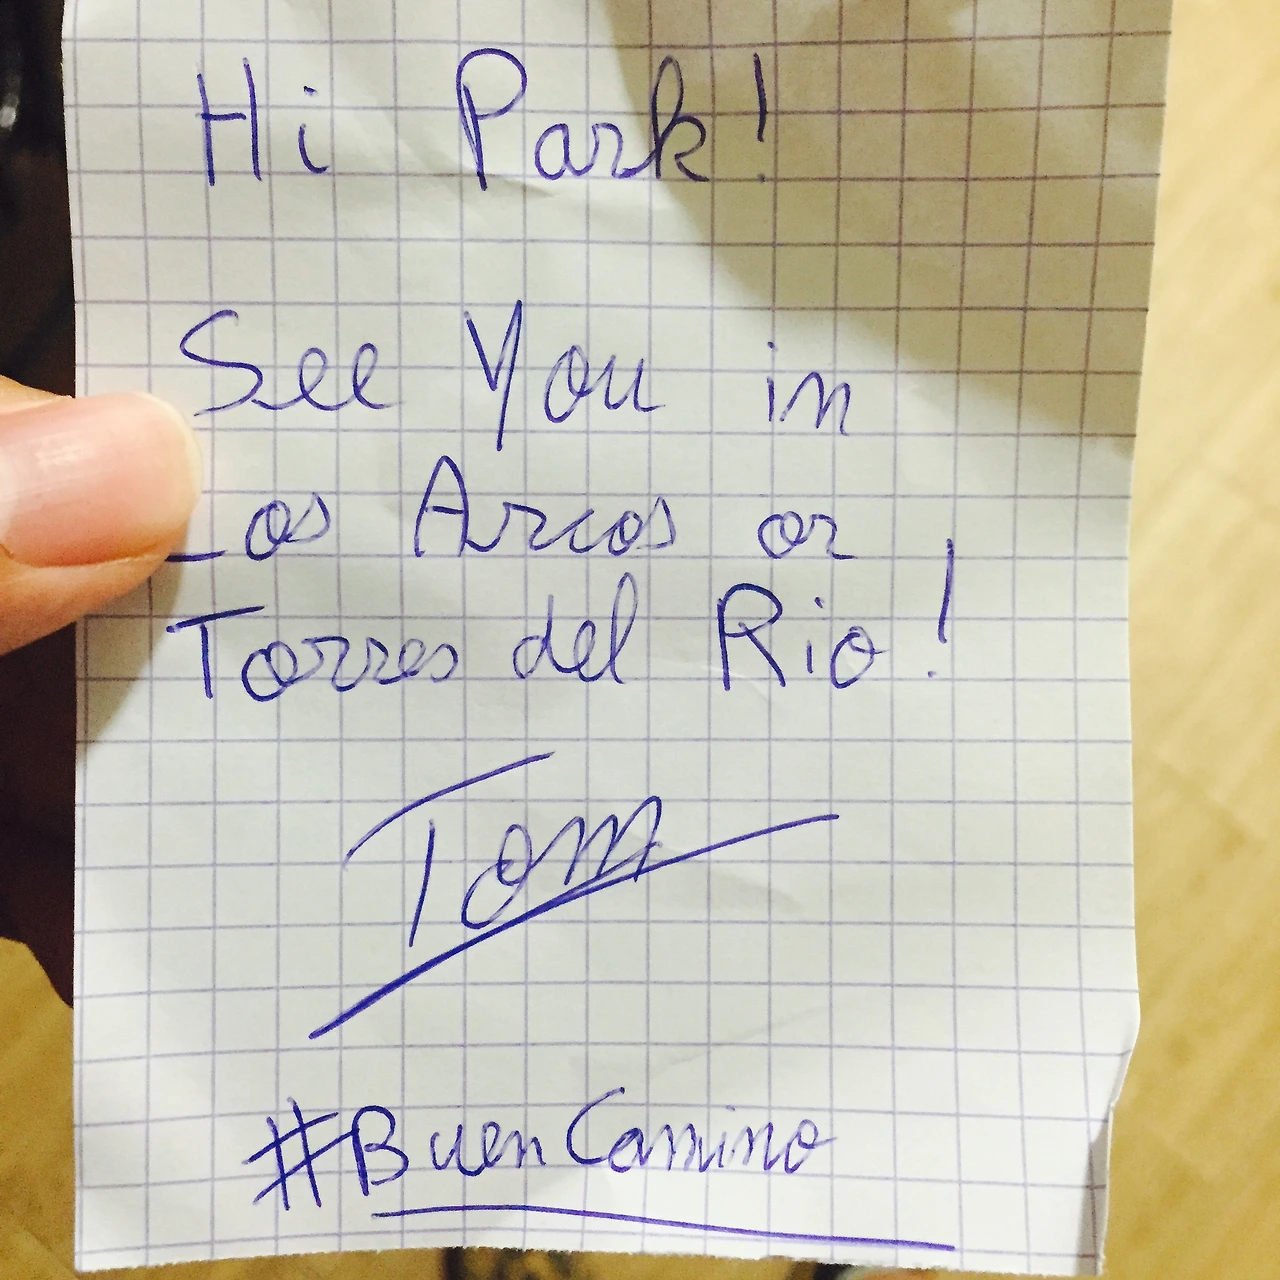 Hi Park!
See You in
Los Arcos or
Torres del Rio!
Tom
#BuenCamino